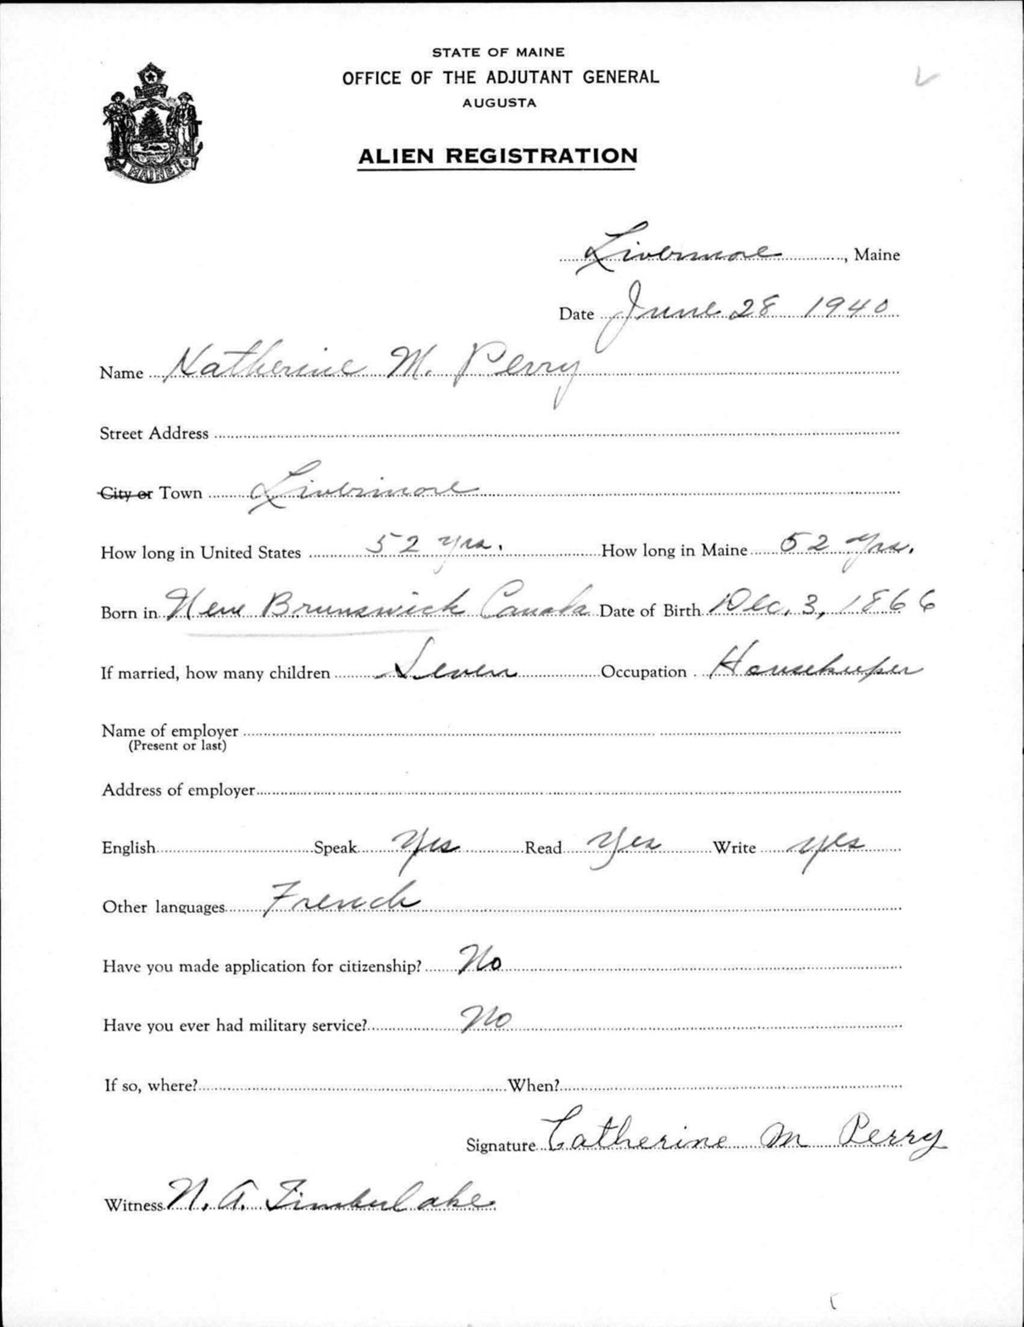 STATE OF MAINE
OFFICE OF THE ADJUTANT GENERAL
AUGUSTA
ALIEN REGISTRATION
MAINE
Livermore, Maine
Date June 28 1940
Name Katherine M. Perry
Street Address
City or Town Livermore
How long in United States 52 yrs. How long in Maine 52 yrs.
Born in New Brunswick Canada Date of Birth Dec. 3, 1866
If married, how many children Seven Occupation Housekeeper
Name of employer
(Present or last)
Address of employer
English Speak Yes Read Yes Write yes
Other languages French
Have you made application for citizenship? No
Have you ever had military service? No
If so, where? When?
Signature Catherine M Perry
Witness N. A. Timberlake